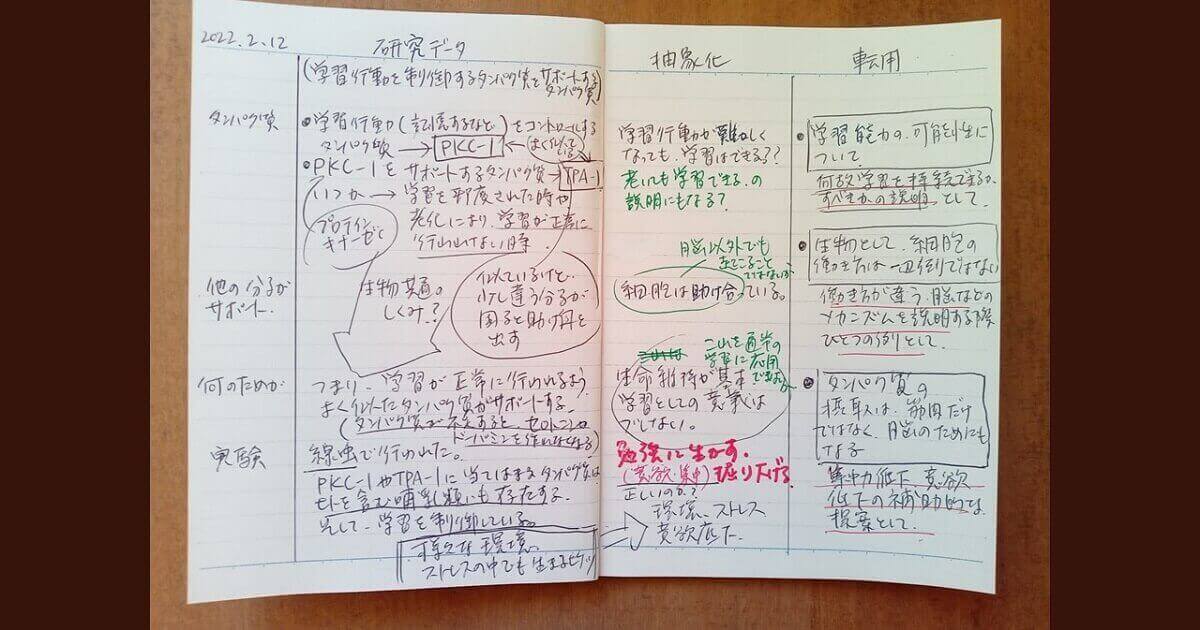 2022.2.12
研究データ
(学習行動を制御するタンパク質をサポートする
タンパク質)
タンパク質
●学習行動(記憶するなど)をコントロールする
タンパク質 → PKC-1 ← よく似て
いる
●PKC-1を サポートするタンパク質→ TPA-1
いつか → 学習を邪魔された時や
老化により、学習が正常に
行われない時。
プロテイン
キナーゼC
他の分子が
サポート。
生物共通の
しくみ?
似ているけど、
少し違う分子が
困ると助け舟を
出す
何のためか
つまり、学習が正常に行われるよう、
よく似たタンパク質がサポートする。
(タンパク質が不足すると、セロトニンや
ドーパミンを作れなくなる)
実験
線虫で行われた。
PKC-1やTPA-1に当てはまるタンパク質は
ヒトを含む哺乳類にも存在する。
そして、学習を制御している。
様々な環境、
ストレスの中でも生きるヒケツ
抽象化
学習行動が難しく
なっても、学習はできる??
老いても学習できる、の
説明にもなる?
脳以外でも
起こること
ではないか
細胞は助け合っている。
これを通常の
学習に応用
できないか
生命維持が基本
学習としての意義は
でしない。
勉強に生かす。
(意欲、集中)掘り下げる
正しいのか?
環境、ストレス
意欲低下。
転用
●学習能力の、可能性に
ついて
何故学習を持続できるか、
すべきかの説明として。
●生物として、細胞の
働き方は一辺倒ではない
働き方が違う、脳などの
メカニズムを説明する際
ひとつの例として。
●タンパク質の
摂取は、筋肉だけ
ではなく、脳のためにも
なる
集中力低下、意欲
低下の補助的な
提案として。